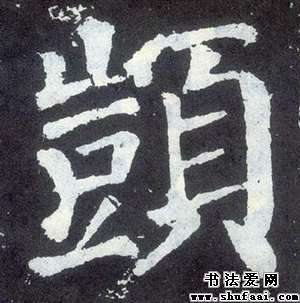 顗
书法爱网
www.shufaai.com